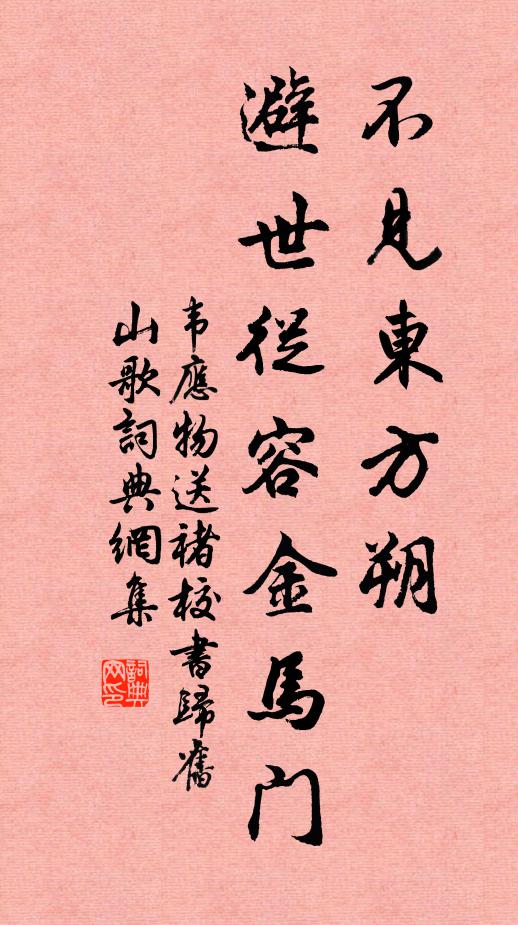 不見東方朔
避世從容金馬门
韦應物送褚校書歸舊
山歌詞典網集
詞典
网印